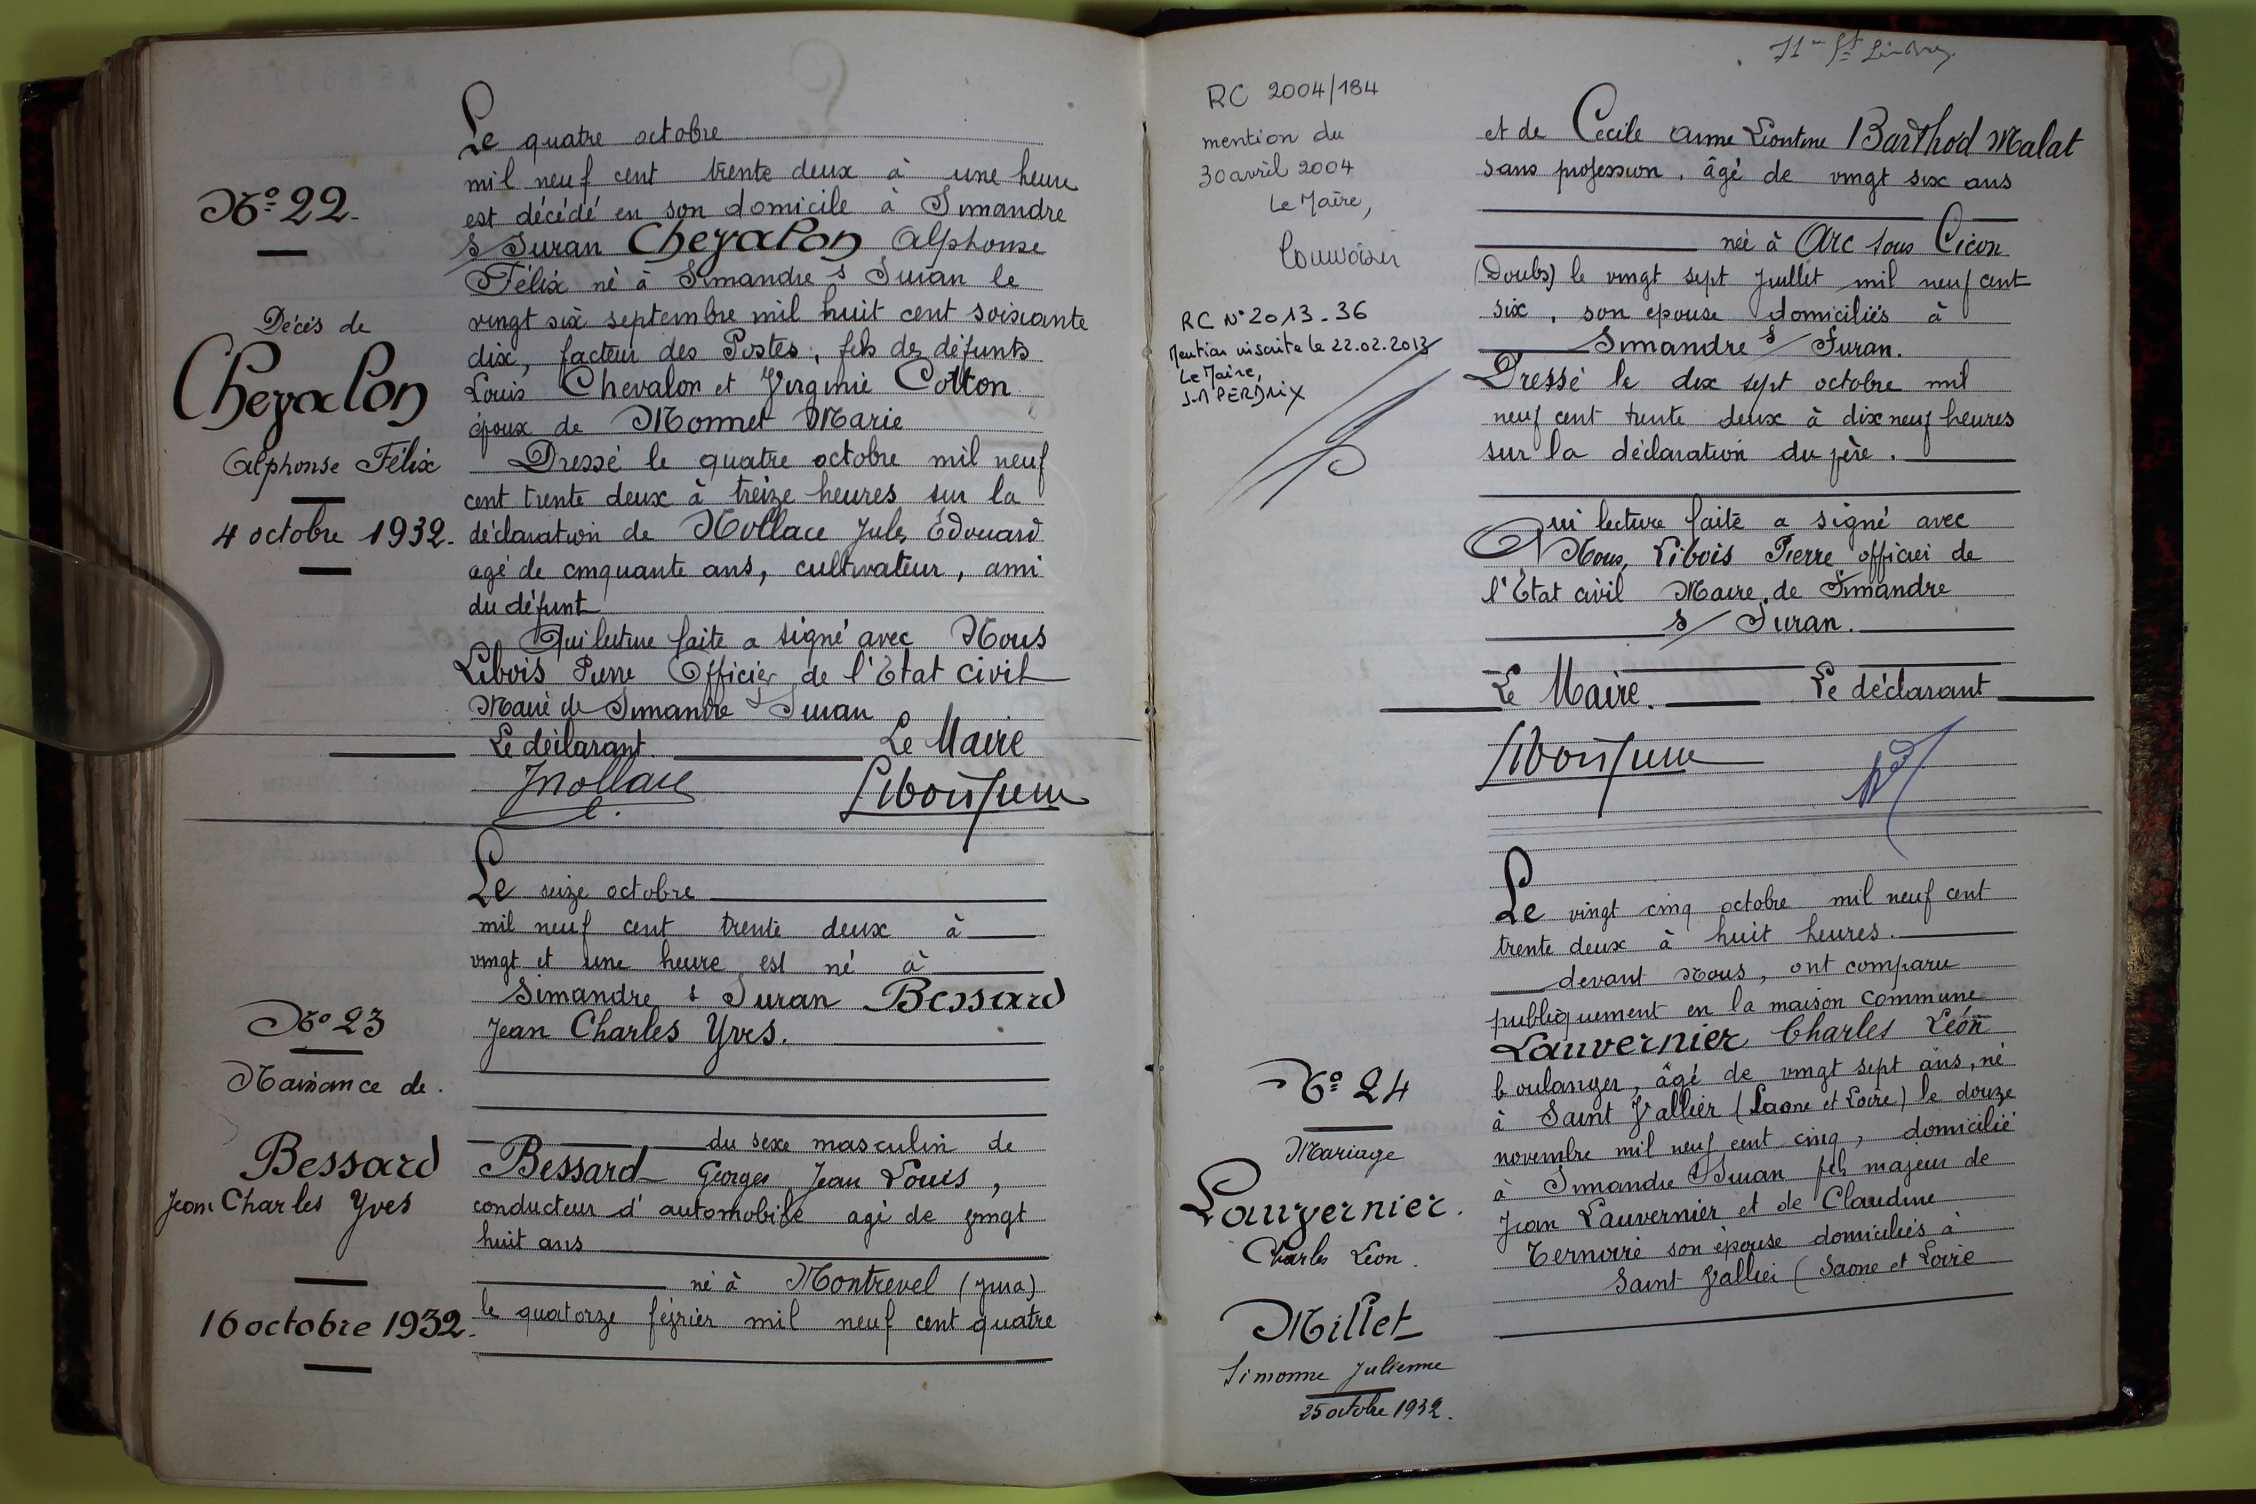 N° 22.
Décès de
Chevalon
Alphonse Félix
4 octobre 1932.
Le quatre octobre
mil neuf cent trente deux à une heure
est décédé en son domicile à Simandre
s/ Suran Chevalon Alphonse
Félix né à Simandre s/ Suran le
vingt six septembre mil huit cent soixante
dix, facteur des Postes, fils des défunts
Louis Chevalon et Virginie Cotton
époux de Monnet Marie
Dressé le quatre octobre mil neuf
cent trente deux à treize heures sur la
déclaration de Mollace Jules Edouard
agé de cinquante ans, cultivateur, ami
du défunt
Qui lecture faite a signé avec Nous
Libois Pierre Officier de l'Etat civil
Maire de Simandre s/ Suran
Le déclarant. Le Maire
N° 23
Naissance de.
Bessard
Jean Charles Yves
16 octobre 1932.
Le seize octobre
mil neuf cent trente deux à
vingt et une heure est né à
Simandre s Suran Bessard
Jean Charles Yves.
du sexe masculin de
Bessard Georges Jean Louis,
conducteur d'automobile agé de vingt
huit ans
né à Montrevel (Jura)
le quatorze février mil neuf cent quatre
RC 2004/184
mention du
30 avril 2004
Le Maire,
RC N° 2013-36
Mention inscrite le 22.02.2013
Le Maire,
J-M PERDRIX
et de Cécile Anne Léontine Barthod Malat
sans profession. âgé de vingt six ans
née à Arc sous Cicon
(Doubs) le vingt sept Juillet mil neuf cent
six, son epouse domiciliés à
Simandre s/ Suran.
Dressé le dix sept octobre mil
neuf cent trente deux à dix neuf heures
sur la déclaration du père.
Qui lecture faite a signé avec
Nous, Libois Pierre officier de
l'Etat civil Maire de Simandre
s/ Suran.
Le Maire. Le déclarant
N° 24
Mariage
Lauvernier.
Charles Léon.
Millet
Simonne Julienne
25 octobre 1932.
Le vingt cinq octobre mil neuf cent
trente deux à huit heures.
devant Nous, ont comparu
publiquement en la maison commune
Lauvernier Charles Léon
boulanger, âgé de vingt sept ans, né
à Saint Vallier (Saone et Loire) le douze
novembre mil neuf cent cinq, domicilié
à Simandre s/ Suran fils majeur de
Jean Lauvernier et de Claudine
Ternoire son épouse domiciliés à
Saint Vallier (Saone et Loire